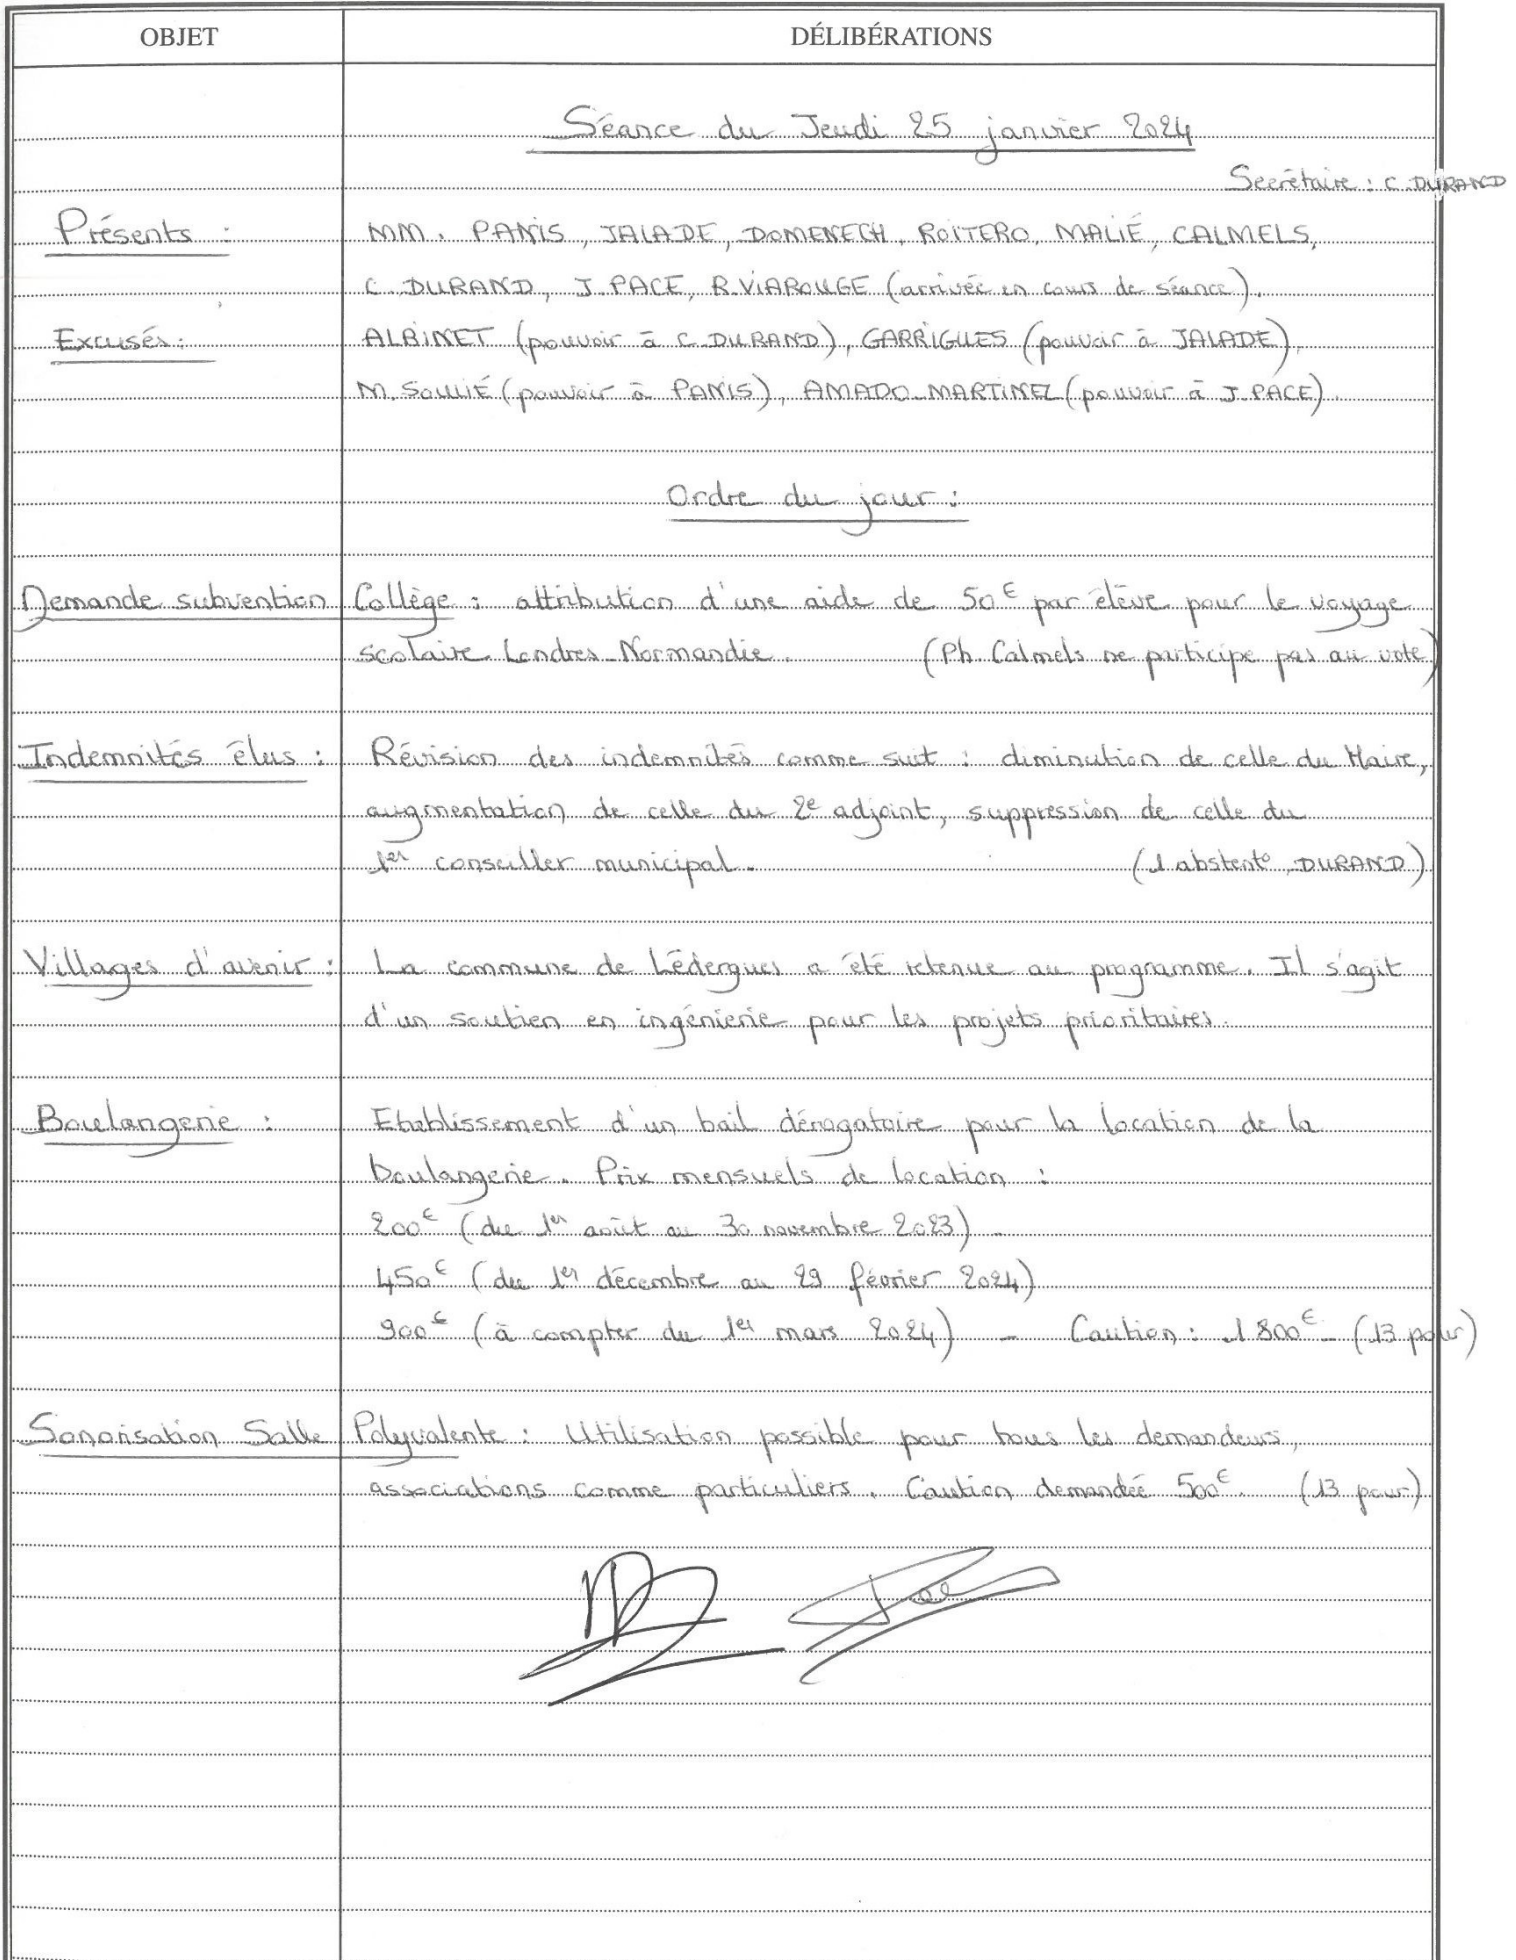 OBJET
DÉLIBÉRATIONS
Séance du Jeudi 25 janvier 2024
Secrétaire : C. DURAND
Présents : MM. PANIS, JALADE, DOMENECH, ROÏTERO, MALIÉ, CALMELS,
C. DURAND, J. PACE, R. VIAROUGE (arrivée en cours de séance).
Excusés : ALBINET (pouvoir à C. DURAND), GARRIGUES (pouvoir à JALADE),
M. SOULIÉ (pouvoir à PANIS), AMADO-MARTINEZ (pouvoir à J. PACE).
Ordre du jour :
Demande subvention Collège : attribution d'une aide de 50€ par élève pour le voyage
scolaire Londres-Normandie. (Ph. Calmels ne participe pas au vote)
Indemnités élus : Révision des indemnités comme suit : diminution de celle du Maire,
augmentation de celle du 2e adjoint, suppression de celle du
1er conseiller municipal. (1 abstent° DURAND)
Villages d'avenir : La commune de Lédergues a été retenue au programme. Il s'agit
d'un soutien en ingénierie pour les projets prioritaires.
Boulangerie : Etablissement d'un bail dérogatoire pour la location de la
boulangerie. Prix mensuels de location :
200€ (du 1er août au 30 novembre 2023)
450€ (du 1er décembre au 29 février 2024)
900€ (à compter du 1er mars 2024) - Caution : 1 800€ - (13 pour)
Sonorisation Salle Polyvalente : Utilisation possible pour tous les demandeurs,
associations comme particuliers. Caution demandée 500€. (13 pour)